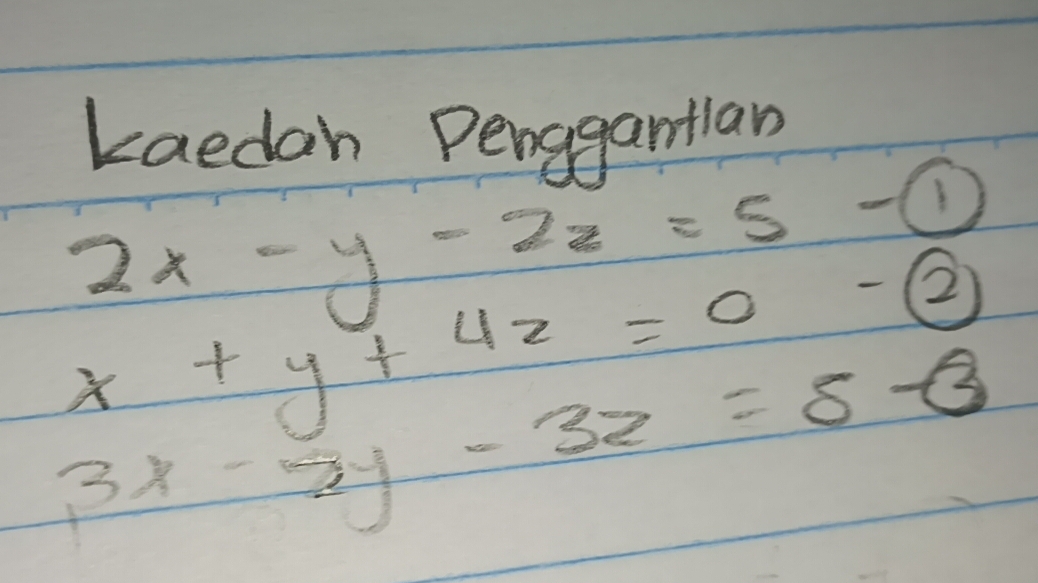 Kaedah Penggantian
2x - y - 2z = 5 - ①
x + y + 4z = 0 - ②
3x - 2y - 3z = 8 - ③